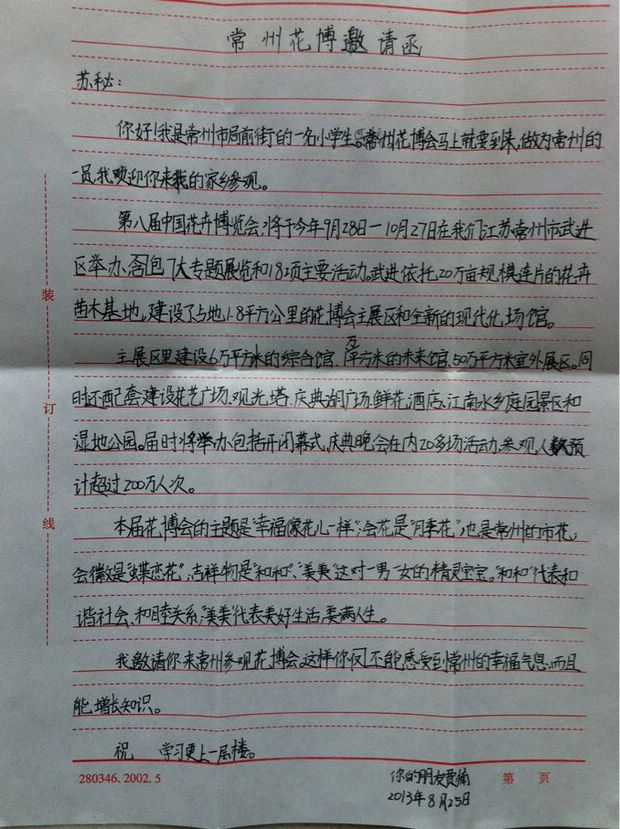 常州花博邀请函
苏秘：
你好！我是常州市局前街的一名小学生。常州花博会马上就要到来，做为常州的
一员，我欢迎你来我的家乡参观。
第八届中国花卉博览会，将于今年9月28日—10月27日在我们江苏常州市武进
区举办、含包7大专题展览和18项主要活动。武进依托20万亩规模连片的花卉
苗木基地，建设了占地1.8平方公里的花博会主展区和全新的现代化场馆。
主展区里建设6万平方米的综合馆、平方米的未来馆、50万平方米室外展区。同
时还配套建设花艺广场、观光塔、庆典湖广场、鲜花酒店、江南水乡庭园景区和
湿地公园。届时将举办包括开闭幕式、庆典晚会在内20多场活动，参观人数预
计超过200万人次。
本届花博会的主题是“幸福像花儿一样”；会花是“月季花”，也是常州的市花；
会徽是“蝶恋花”，吉祥物是“和和”、“美美”这对一男一女的精灵宝宝。“和和”代表和
谐社会、和睦关系，“美美”代表美好生活，美满人生。
我邀请你来常州参观花博会。这样你不能感受到常州的幸福气息，而且
能增长知识。
祝 学习更上一层楼。
你的朋友费倩
2013年8月25日
装
订
线
280346.2002.5
第 页